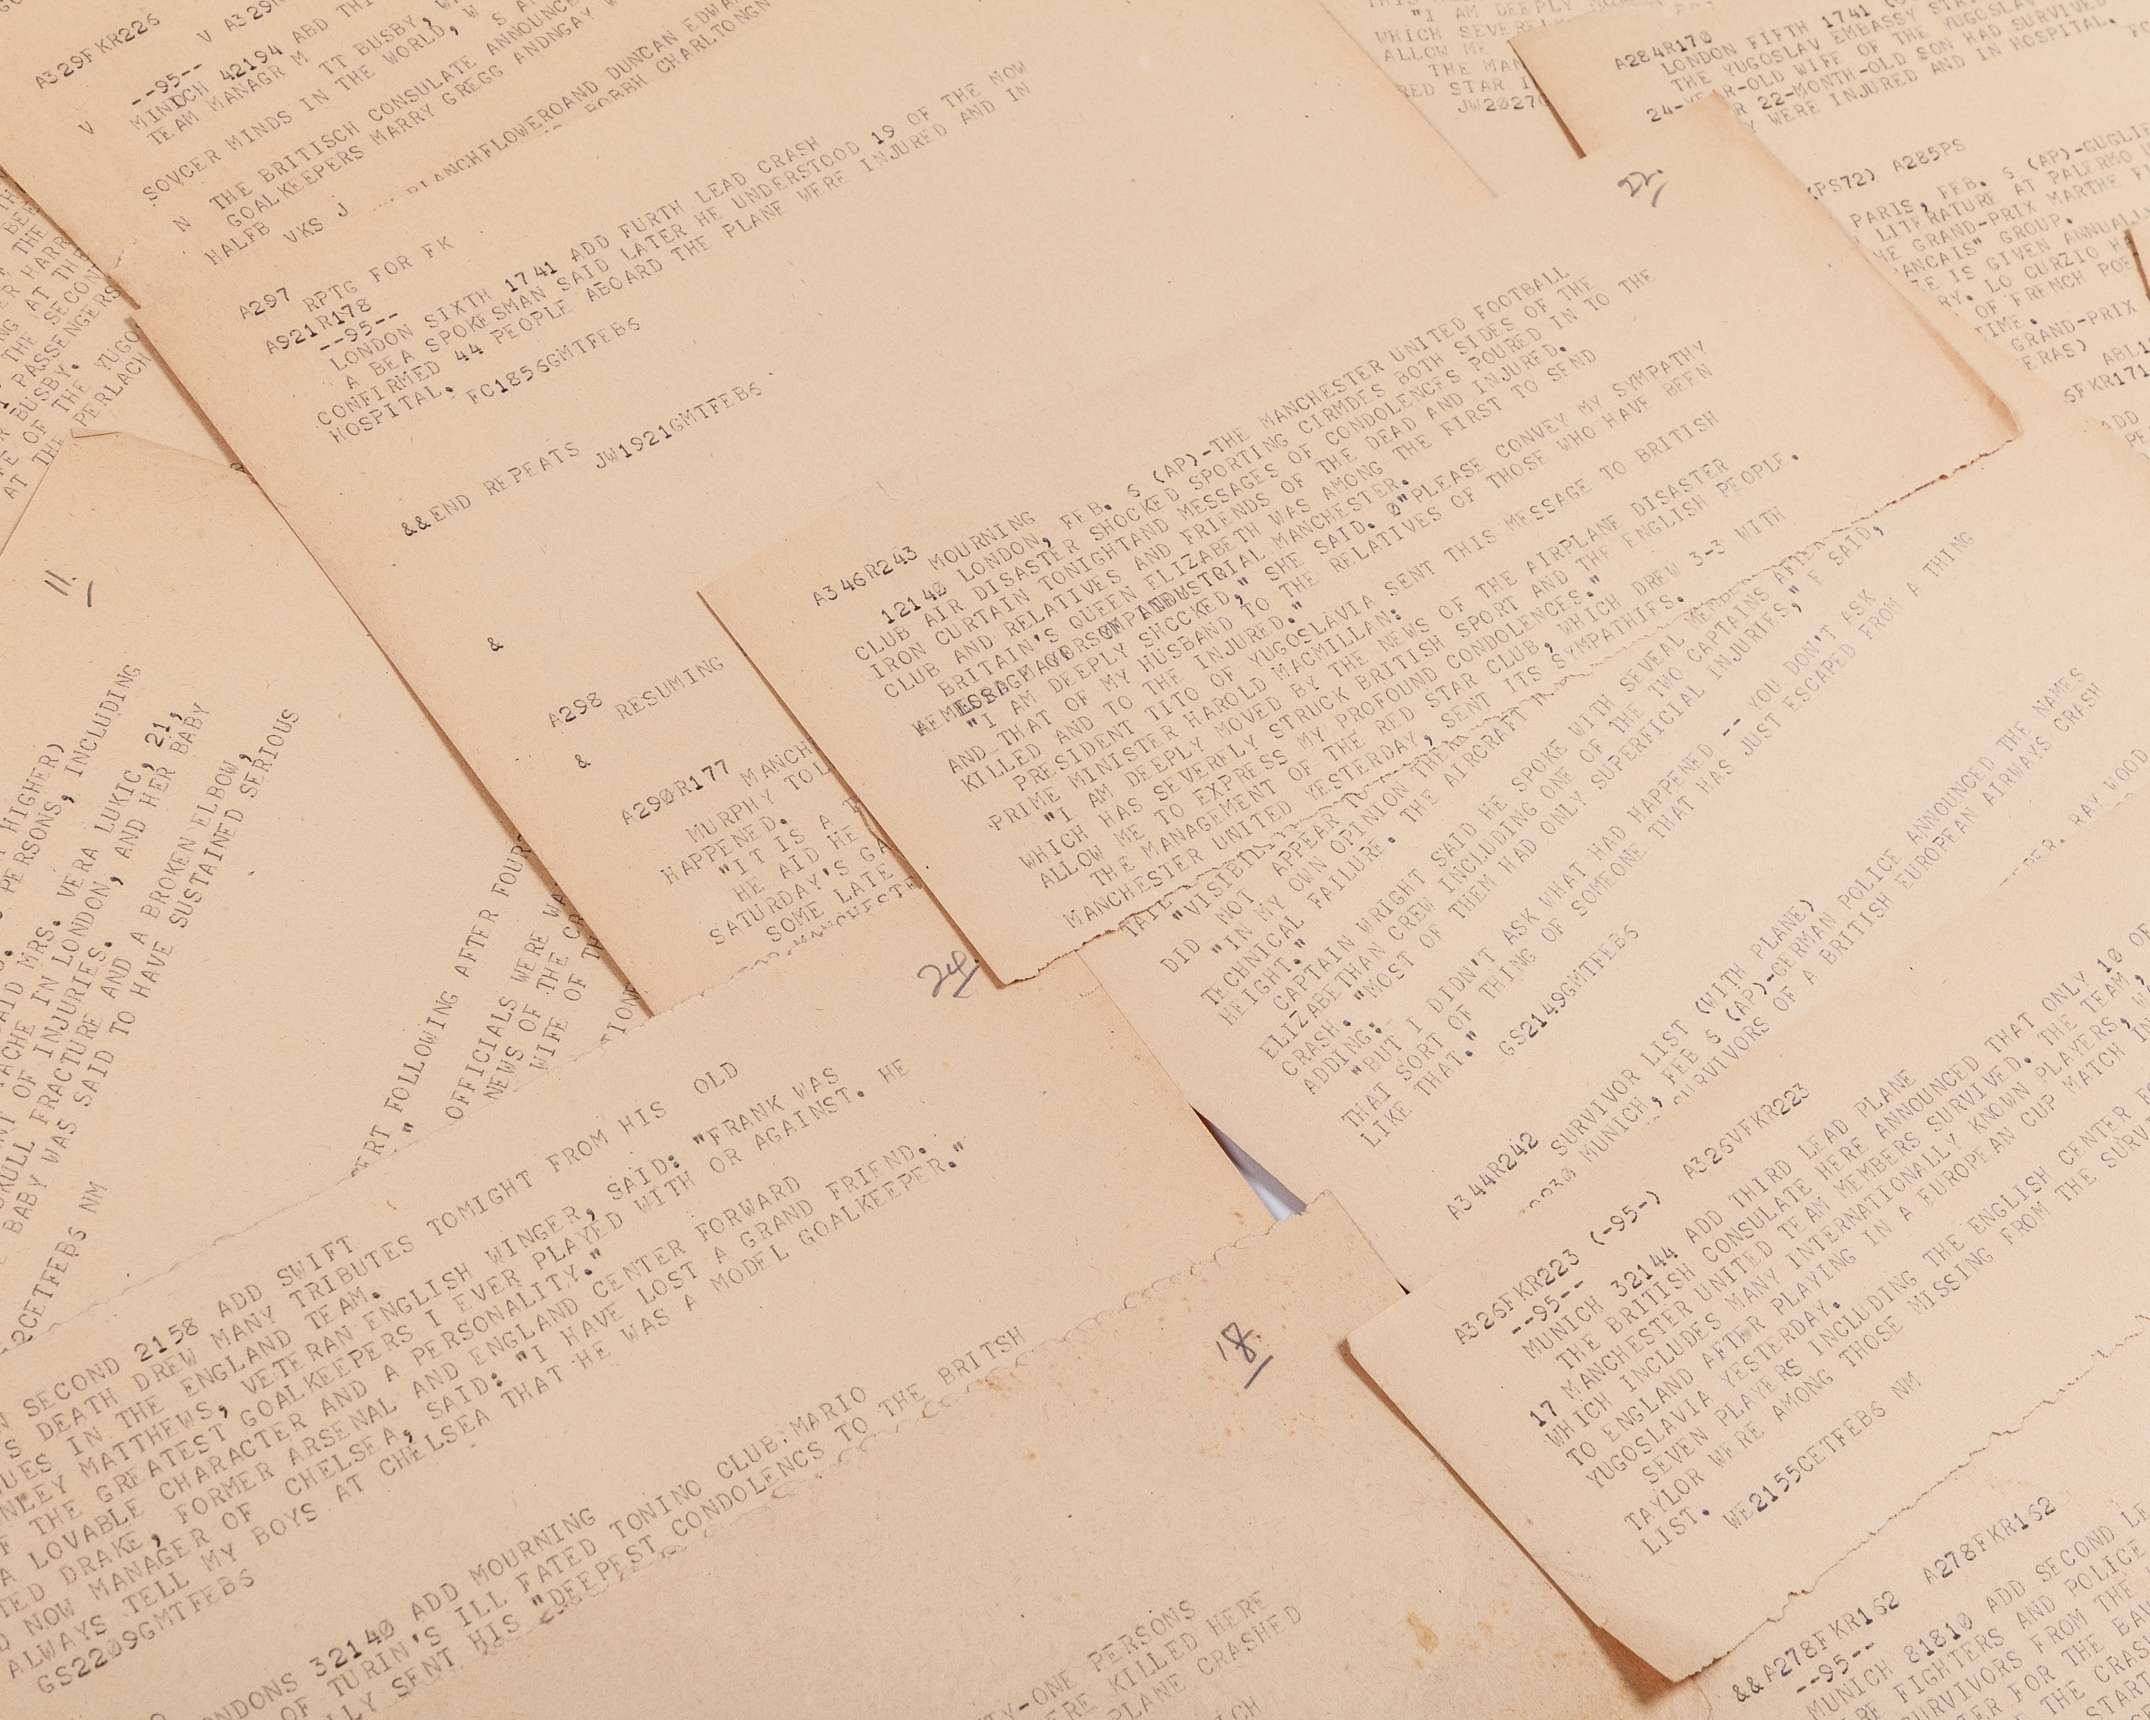 A329FKR226
V A329
--95--
V MINDCH 42194 ABD
TEAM MANAGR M TT BUSBY,
SOVCER MINDS IN THE WORLD,
N THE BRITISCH CONSULATE ANNOUNCE
GOALKEEPERS MARRY GREGG ANDNGAY
HALFB VKS J BLANCHFLOWEROAND DUNCAN EDWA
BORRH CHARLTONGN
A297 RPTG FOR FK
A921R178
--95--
LONDON SIXTH 1741 ADD FURTH LEAD CRASH
A BEA SPOKESMAN SAID LATER HE UNDERSTOOD 19 OF THE NOW
CONFIRMED 44 PEOPLE ABOARD THE PLANE WERE INJURED AND IN
HOSPITAL.
FC1856GMTFEB6
&&END REPEATS
JW1921GMTFEB6
&
A298 RESUMING
&
A290R177
MANCH
MURPHY TOL
HAPPENED.
"IT IS A
HE AID HE
SATURDAY'S GA
SOME LATE
"I AM DEEPLY
WHICH SEVEREL
ALLOW ME
THE MAN
RED STAR
JW2027G
A284R170
LONDON FIFTH 1741
THE YUGOSLAV EMBASSY STA
24-YEAR-OLD WIFE OF THE YUGOSLAV
R 22-MONTH-OLD SON HAD SURVIVED
Y WERE INJURED AND IN HOSPITAL.
(PS72) A285PS
PARIS, FEB. S (AP)-GUGLIE
LITERATURE AT PALERMO U
GRAND-PRIX MARTHE
ANCAIS" GROUP.
IS GIVEN ANNUALLY
RY. LO CURZIO
OF FRENCH POE
TIME.
GRAND-PRIX
ERAS)
22.
A346R243
MOURNING
12140 LONDON, FEB. S (AP)-THE MANCHESTER UNITED FOOTBALL
CLUB AIR DISASTER SHOCKED SPORTING CIRMDES BOTH SIDES OF THE
IRON CURTAIN TONIGHTAND MESSAGES OF CONDOLENCES POURED IN TO THE
CLUB AND RELATIVES AND FRIENDS OF THE DEAD AND INJURED.
BRITAIN'S QUEEN ELIZABETH WAS AMONG THE FIRST TO SEND
INDUSTRIAL MANCHESTER.
"I AM DEEPLY SHCCKED," SHE SAID. 0"PLEASE CONVEY MY SYMPATHY
AND THAT OF MY HUSBAND TO THE RELATIVES OF THOSE WHO HAVE BEEN
KILLED AND TO THE INJURED."
PRESIDENT TITO OF YUGOSLAVIA SENT THIS MESSAGE TO BRITISH
PRIME MINISTER HAROLD MACMILLAN:
"I AM DEEPLY MOVED BY THE NEWS OF THE AIRPLANE DISASTER
WHICH HAS SEVERELY STRUCK BRITISH SPORT AND THE ENGLISH PEOPLE.
ALLOW ME TO EXPRESS MY PROFOUND CONDOLENCES."
THE MANAGEMENT OF THE RED STAR CLUB, WHICH DREW 3-3 WITH
MANCHESTER UNITED YESTERDAY, SENT ITS SYMPATHIES.
TAIL
"VISIBILITY
DID NOT APPEAR TO
"IN MY OWN OPINION THE
TECHNICAL FAILURE. THE AIRCRAFT
HEIGHT."
CAPTAIN WRIGHT SAID HE SPOKE WITH SEVERAL MEMBE AFTER
ELIZABETHAN CREW INCLUDING ONE OF THE TWO CAPTAINS
CRASH. "MOST OF THEM HAD ONLY SUPERFICIAL INJURIES," E SAID,
ADDING:
"BUT I DIDN'T ASK WHAT HAD HAPPENED -- YOU DON'T ASK
THAT SORT OF THING OF SOMEONE THAT HAS JUST ESCAPED FROM A THING
LIKE THAT."
GS2149GMTFEB6
A344R242
SURVIVOR LIST (WITH PLANE)
MUNICH, FEB S (AP)-GERMAN POLICE ANNOUNCED THE NAMES
SURVIVORS OF A BRITISH EUROPEAN AIRWAYS CRASH
R. RAY WOOD
A326FKR223 (-95-) A32SVFKR223
--95--
MUNICH 32144 ADD THIRD LEAD PLANE
THE BRITISH CONSULATE HERE ANNOUNCED THAT ONLY 10 OF
17 MANCHESTER UNITED TEAM MEMBERS SURVIVED. THE TEAM,
WHICH INCLUDES MANY INTERNATIONALLY KNOWN PLAYERS, WA
TO ENGLAND AFTER PLAYING IN A EUROPEAN CUP MATCH IN
YUGOSLAVIA YESTERDAY.
SEVEN PLAYERS INCLUDING THE ENGLISH CENTER
TAYLOR WERE AMONG THOSE MISSING FROM THE SURVI
LIST.
WE2155CETFEB6 NM
&&A278FKR162 A278FKR162
--95--
MUNICH 81810 ADD SECOND LE
RE FIGHTERS AND POLICE
SURVIVORS FROM THE
ER FOR THE BAV
THE CRASH
START
11.
HIGHER)
PERSONS, INCLUDING
SAID MRS. VERA LUKIC, 21,
TACHE IN LONDON, AND HER BABY
NT OF INJURIES.
SKULL FRACTURE AND A BROKEN ELBOW,
BABY WAS SAID TO HAVE SUSTAINED SERIOUS
2CETFEB6 NM
ERT FOLLOWING AFTER FOUR-
OFFICIALS WERE WA
NEWS OF THE CR
WIFE OF TH
24.
SECOND 2158 ADD SWIFT
S DEATH DREW MANY TRIBUTES TOMIGHT FROM HIS OLD
UES IN THE ENGLAND TEAM.
NLEY MATTHEWS, VETERAN ENGLISH WINGER, SAID: "FRANK WAS
F THE GREATEST GOALKEEPERS I EVER PLAYED WITH OR AGAINST. HE
A LOVABLE CHARACTER AND A PERSONALITY."
TED DRAKE, FORMER ARSENAL AND ENGLAND CENTER FORWARD
D NOW MANAGER OF CHELSEA, SAID: "I HAVE LOST A GRAND FRIEND.
ALWAYS TELL MY BOYS AT CHELSEA THAT HE WAS A MODEL GOALKEEPER."
GS2209GMTFEB6
18.
ONDONS 32140 ADD MOURNING
OF TURIN'S ILL FATED TONINO CLUB,MARIO
LLY SENT HIS "DEEPEST CONDOLENCS TO THE BRITSH
TY-ONE PERSONS
ERE KILLED HERE
PLANE CRASHED